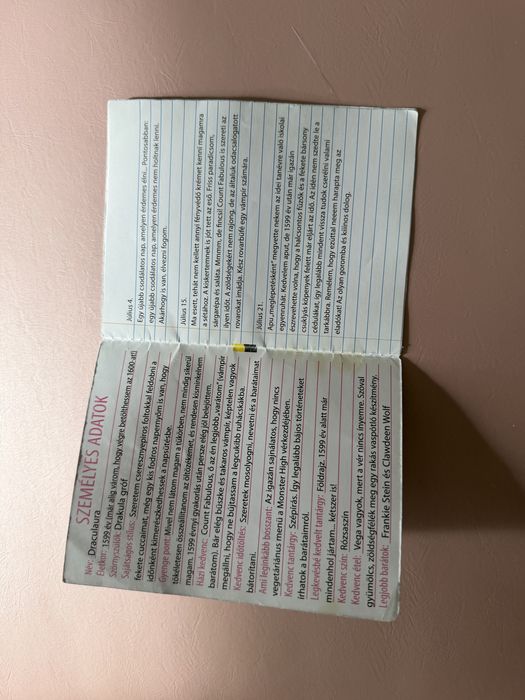 SZEMÉLYES ADATOK
Név: Draculaura
Életkor: 1599 év (már alig várom, hogy végre betölthessem az 1600-at!)
Szörnyszülők: Drakula gróf
Sajátságos stílus: Szeretem cseresznyepiros foltokkal feldobni a
fekete cuccaimat, még egy kis fodros napernyőm is van, hogy
időnként kimerészkedhessek a napsütésbe.
Gyenge pont: Mivel nem látom magam a tükörben, nem mindig sikerül
tökéletesen összeállítanom az öltözékemet, és rendesen kisminkelnem
magam. 1599 évnyi gyakorlás után persze elég jól belejöttem.
Házi kedvenc: Count Fabulous, ő az én legjobb „varátom” (vámpír
barátom). Bár elég büszke és takaros vámpír, képtelen vagyok
megállni, hogy ne bújtassam a legcukibb ruhácskákba.
Kedvenc időtöltés: Szeretek mosolyogni, nevetni és a barátaimat
bátorítani.
Ami leginkább bosszant: Az igazán sajnálatos, hogy nincs
vegetáriánus menü a Monster High vérkezdéjében.
Kedvenc tantárgy: Szépírás. Így legalább bájos történeteket
írhatok a barátaimról.
Legkevésbé kedvelt tantárgy: Földrajz. 1599 év alatt már
mindenhol jártam... kétszer is!
Kedvenc szín: Rózsaszín
Kedvenc étel: Vega vagyok, mert a vér nincs ínyemre. Szóval
gyümölcs, zöldségfélék meg egy rakás vaspótló készítmény.
Legjobb barátok: Frankie Stein és Clawdeen Wolf
Július 4.
Egy újabb csodálatos nap, amelyen érdemes élni... Pontosabban:
egy újabb csodálatos nap, amelyen érdemes nem holtnak lenni.
Akárhogy is van, élvezni fogom.
Július 15.
Ma esett, tehát nem kellett annyi fényvédő krémet kenni magamra
a sétához. A kiskertemnek is jót tett az eső. Friss paradicsom,
sárgarépa és saláta. Mmmm, de fincsi! Count Fabulous is szereti az
ilyen időt. A zöldségekért nem rajong, de az általuk odacsalogatott
rovarokat imádja. Kész rovarbüfé egy vámpír számára.
Július 21.
Apu „meglepetésként” megvette nekem az idei tanévre való iskolai
egyenruhát. Kedvelem aput, de 1599 év után már igazán
észrevehette volna, hogy a halcsontos fűzők és a fekete bársony
csuklyás köpenyek felett már eljárt az idő. Az idén nem szedte le a
cédulákat, így legalább mindent vissza tudok cserélni valami
tarkábbra. Remélem, hogy ezúttal neeem harapta meg az
eladókat! Az olyan goromba és különös dolog.